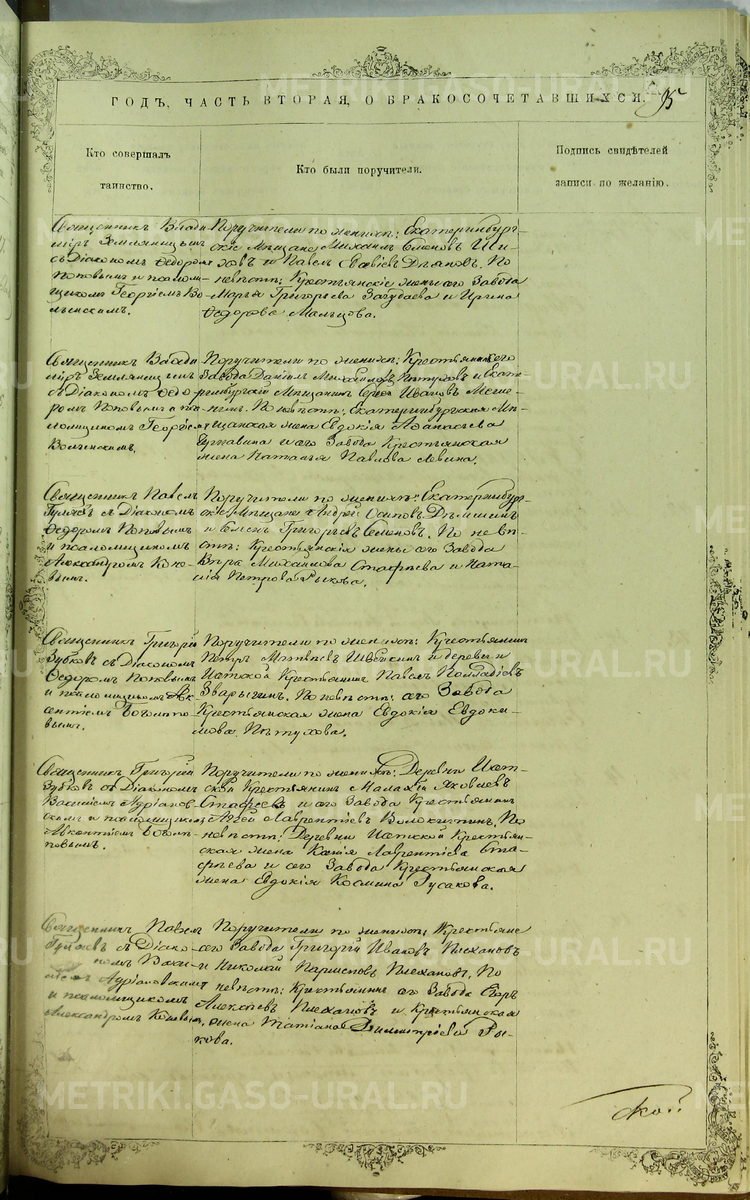 ГОДЪ, ЧАСТЬ ВТОРАЯ, О БРАКОСОЧЕТАВШИХСЯ.
95
Кто совершалъ
таинство.
Кто были поручители.
Подпись свидѣтелей
записи по желанію.
Священникъ Влади
міръ Земляницынъ
съ Діакономъ Ѳедором
Поповымъ и псалом
щикомъ Георгіемъ Во
лынскимъ.
Поручители по женихѣ: Екатеринбург
скіе Мѣщане Михаилъ Семеновъ
и Павелъ По
невѣстѣ: Крестьянскіе жены его Завода
Марѳа Григорьева и Ирина
Ѳедорова Мальцова.
Священникъ Влади
міръ Земляницынъ
съ Діакономъ Ѳедо
ромъ Поповымъ и пса
ломщикомъ Георгіем
Волынскимъ.
Поручители по женихѣ: Крестьянинъ сего
Завода Даніилъ Михайловъ Пѣтуховъ и Екате
ринбургскій Мѣщанинъ Ивановъ
По невѣстѣ: Екатеринбургская Мѣ
щанская жена Евдокія Аѳанасьева
и его Завода Крестьянская
жена Наталья Павлова Левина.
Священникъ Павелъ
Гуляевъ съ Діакономъ
Ѳедоромъ Поповымъ
и псаломщикомъ
Александромъ Коко
вымъ.
Поручители по женихѣ: Екатеринбург
скіе Мѣщане Андрей Осиповъ
и Семенъ Григорьевъ Семеновъ. По невѣ
стѣ: Крестьянскія жены его Завода
Вѣра Михайлова Стафѣева и Ната
лія Петрова Рыкова.
Священникъ Григорій
Зубковъ съ Діакономъ
Ѳедоромъ Поповымъ
и псаломщикомъ Ав
ксентіемъ Богато
вымъ.
Поручители по женихѣ: Крестьянинъ
Петръ Матвѣевъ и деревни
Истокой Крестьянинъ Павелъ Палладіевъ
Зварыгинъ. По невѣстѣ: его Завода
Крестьянская жена Евдокія Евдоки
мова Пѣтухова.
Священникъ Григорій
Зубковъ съ Діакономъ
Василіемъ Адріанов
скимъ и псаломщикомъ
Поручители по женихѣ: Деревни Ист
ской Крестьянинъ Малаѳій Яковлевъ
Стафѣевъ и его Завода Крестьянинъ
Лаврентіевъ Волокитинъ. По
невѣстѣ: Деревни Истской Крестьян
ская жена Ксенія Лаврентіева Ста
фѣева и его Завода Крестьянская
жена Евдокія Космина Русакова.
Священникъ Павелъ
Гуляевъ съ Діако
номъ Васи
ліемъ Адріановскимъ
и псаломщикомъ
Александромъ Коковым
Поручители по женихѣ: Крестьяне
сего Завода Григорій Ивановъ Плехановъ
и Николай Плехановъ. По
невѣстѣ: Крестьянинъ его Завода Егоръ
Алексѣевъ Плехановъ и Крестьянская
жена Татіана Димитріева Ры
кова.
METRIKI.GASO-URAL.RU